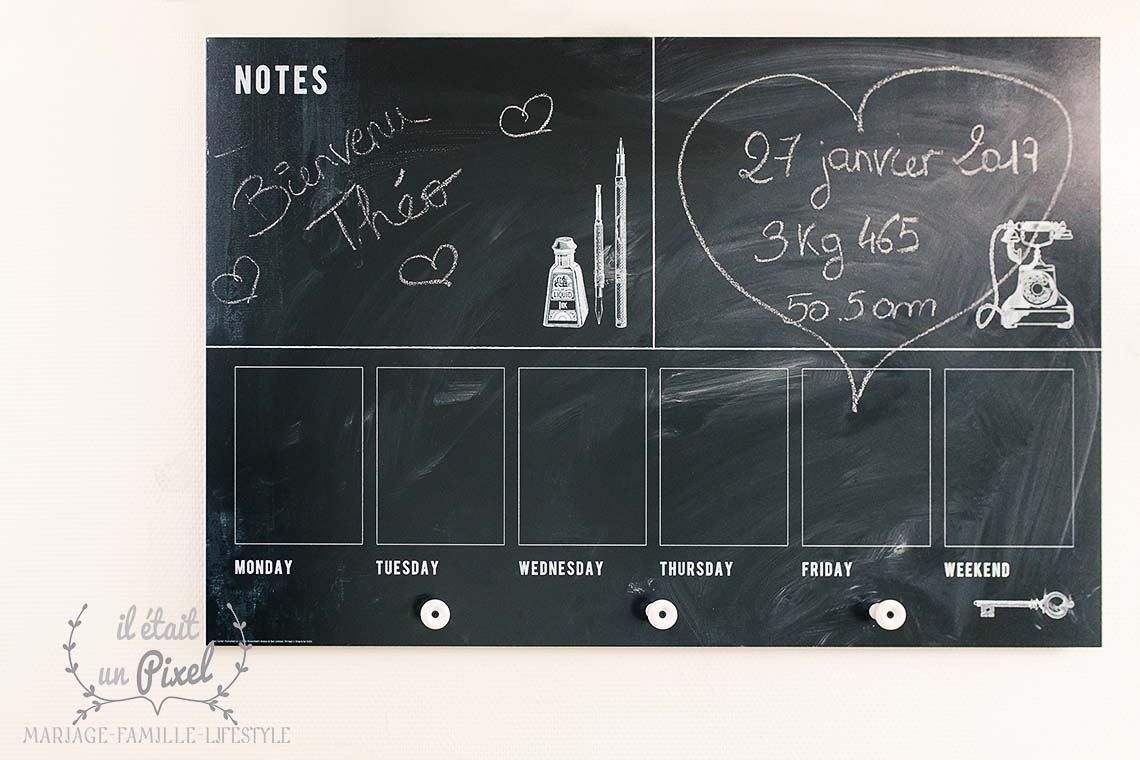 NOTES
Bienvenu
Théo
27 janvier 2017
3Kg 465
50.5 cm
LIQUID
INK
MONDAY
TUESDAY
WEDNESDAY
THURSDAY
FRIDAY
WEEKEND
il était
un Pixel
MARIAGE-FAMILLE-LIFESTYLE